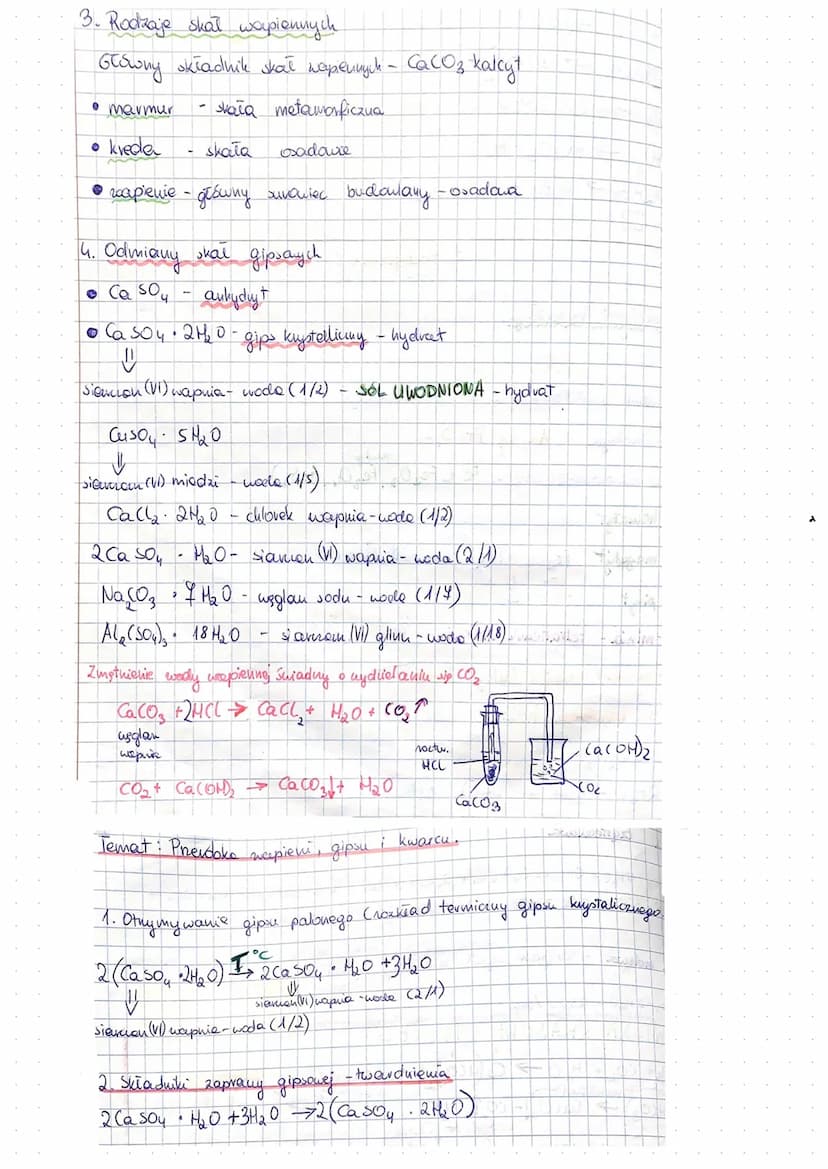 3. Rodzaje skał wapiennych
Główny składnik skał wapiennych - CaCO₃ kalcyt
• marmur - skała metamorficzna
• kreda - skała osadowa
• wapienie - główny surowiec budowlany - osadowa
4. Odmiany skał gipsowych
• CaSO₄ - anhydryt
• CaSO₄ · 2H₂O - gips krystaliczny - hydrat
⇓
siarczan (VI) wapnia - woda (1/2) - SÓL UWODNIONA - hydrat
CuSO₄ · 5H₂O
⇓
siarczan (VI) miedzi - woda (1/5)
CaCl₂ · 2H₂O - chlorek wapnia - woda (1/2)
2CaSO₄ · H₂O - siarczan (VI) wapnia - woda (2/1)
Na₂CO₃ · 7H₂O - węglan sodu - woda (1/7)
Al₂(SO₄)₃ · 18H₂O - siarczan (VI) glinu - woda (1/18)
Zmętnienie wody wapiennej świadczy o wydzielaniu się CO₂
CaCO₃ + 2HCl → CaCl₂ + H₂O + CO₂↑
węglan
wapnia
roztw.
HCl
Ca(OH)₂
CO₂
CaCO₃
CO₂ + Ca(OH)₂ → CaCO₃↓ + H₂O
Temat: Przeróbka wapieni, gipsu i kwarcu.
1. Otrzymywanie gipsu palonego (rozkład termiczny gipsu krystalicznego
2(CaSO₄ · 2H₂O) T °C → 2CaSO₄ · H₂O + 3H₂O
⇓ ⇓
siarczan (VI) wapnia - woda (2/1)
siarczan (VI) wapnia - woda (1/2)
2. Składniki zaprawy gipsowej - twardnienia
2CaSO₄ · H₂O + 3H₂O → 2(CaSO₄ · 2H₂O)